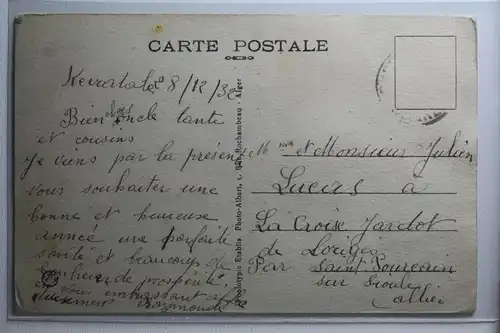 CARTE POSTALE
8/12/32
Bien chers
oncle tante
et cousins
Je viens par la présente
vous souhaiter une
bonne et heureuse
année une parfaite
santé et beaucoup de
bonheur de prospérité
vous embrassant
Photo-Albert, 1, Rue Rochambeau - Alger
Mme et Monsieur Julien
Lucas a
La Croix Jardot
de Loriges
Par Saint Pourçain
sur Sioule
Allier